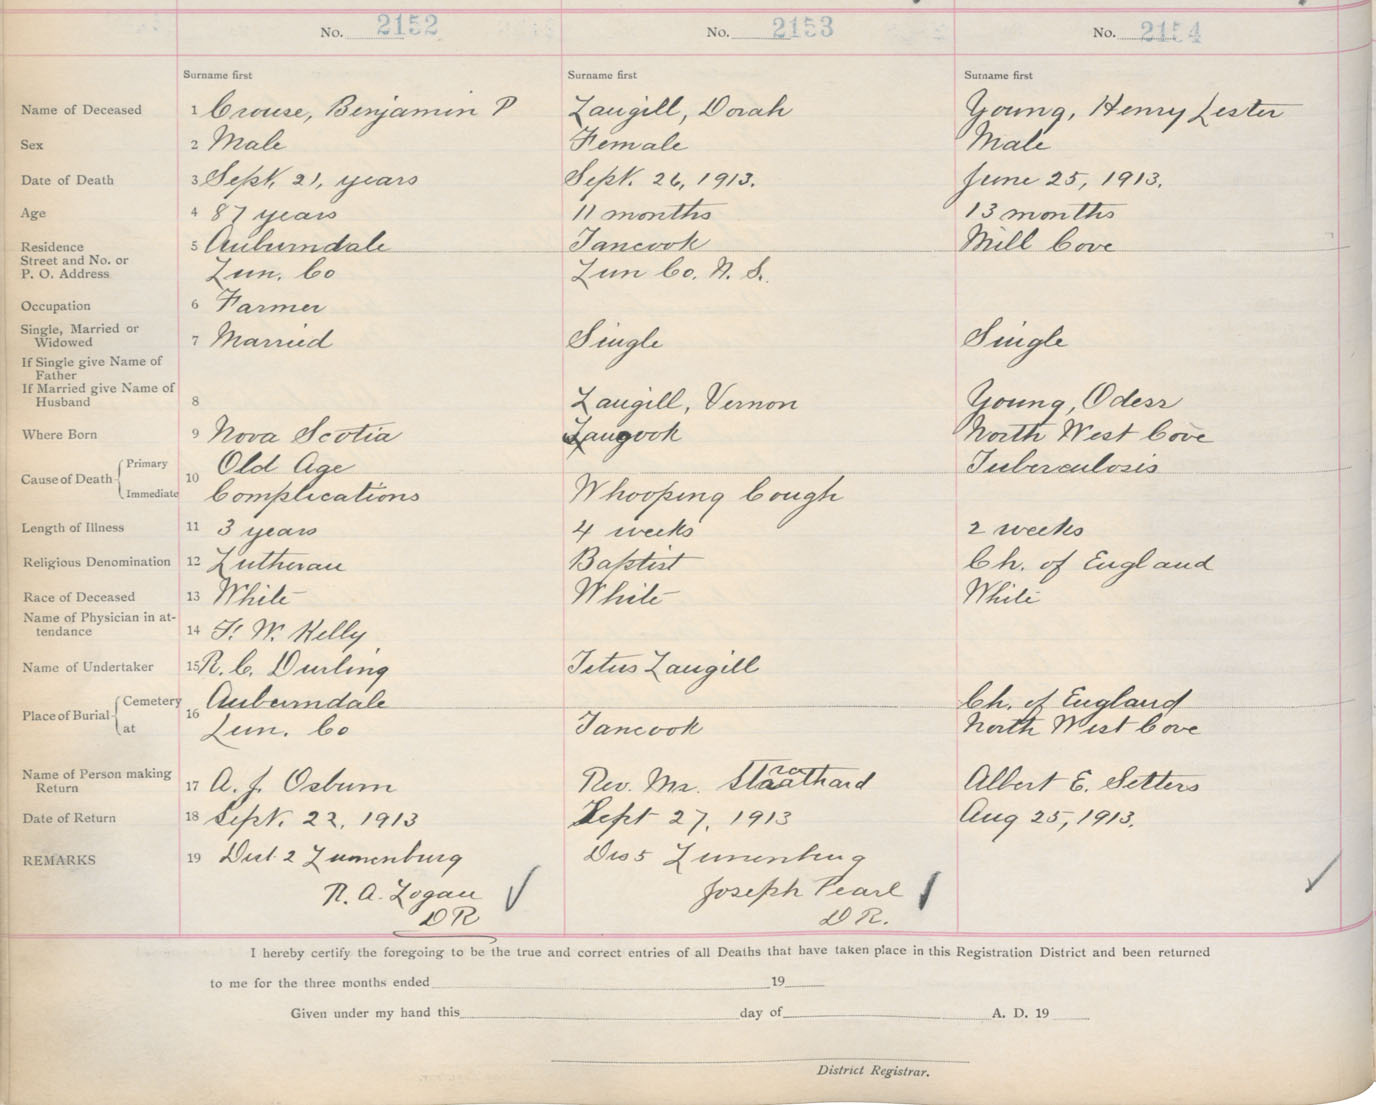 No. 2152 No. 2153 No. 2154
Surname first Surname first Surname first
Name of Deceased 1 Crouse, Benjamin P Langill, Dorah Young, Henry Lester
Sex 2 Male Female Male
Date of Death 3 Sept. 21, years Sept. 26, 1913. June 25, 1913.
Age 4 87 years 11 months 13 months
Residence 5 Auburndale Tancook Mill Cove
Street and No. or
P. O. Address Lun. Co Lun Co. N. S.
Occupation 6 Farmer
Single, Married or
Widowed 7 Married Single Single
If Single give Name of
Father
If Married give Name of
Husband 8 Langill, Vernon Young, Odess
Where Born 9 Nova Scotia North West Cove
Cause of Death Primary 10 Old Age Tuberculosis
Immediate Complications Whooping Cough
Length of Illness 11 3 years 4 weeks 2 weeks
Religious Denomination 12 Lutheran Baptist Ch. of England
Race of Deceased 13 White White White
Name of Physician in at-
tendance 14 F. W. Kelly
Name of Undertaker 15 R. C. Durling Titus Langill
Place of Burial Cemetery 16 Auburndale Ch. of England
at Lun. Co Tancook North West Cove
Name of Person making
Return 17 A. J. Osburn Rev. Mr. Albert E. Setters
Date of Return 18 Sept. 22, 1913 Sept 27, 1913 Aug 25, 1913.
REMARKS 19 Dist 2 Lunenburg Dis 5 Lunenburg
R. A. Logan Joseph Pearl
D R D R.
I hereby certify the foregoing to be the true and correct entries of all Deaths that have taken place in this Registration District and been returned
to me for the three months ended 19
Given under my hand this day of A. D. 19
District Registrar.